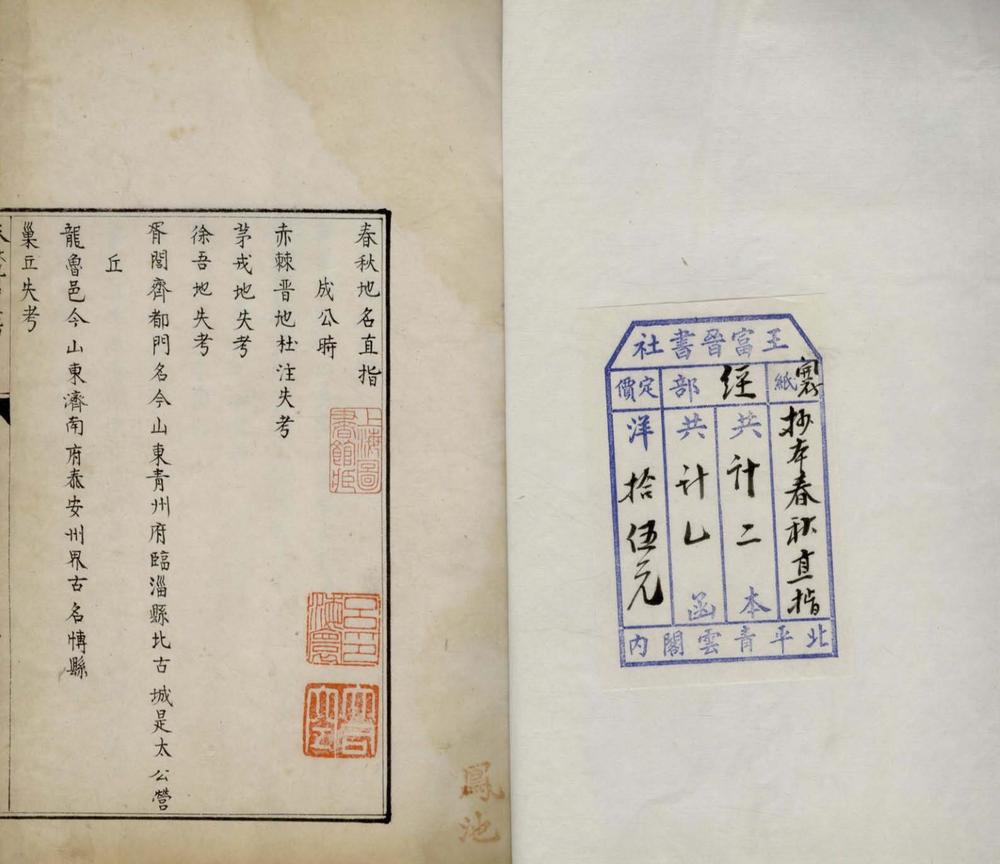 王富晉書社
紙
經部
定價
抄本春秋直指
共计二本
共计乚函
洋拾伍元
北平青雲閣內
春秋地名直指
成公時
赤棘晋地杜注失考
茅戎地失考
徐吾地失考
胥閭齊都門名今山東青州府臨淄縣北古城是太公營
丘
龍魯邑今山東濟南府泰安州界古名博縣
巢丘失考
上海圖書館藏
鳳池